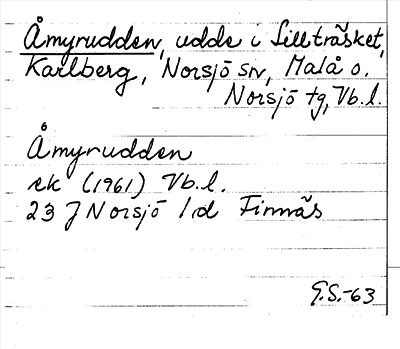 Åmyrudden, udde i Lillträsket,
Karlberg, Norsjö sn, Malå o.
Norsjö tg, Vb.l.
Åmyrudden
ek (1961) Vb.l.
23 J Norsjö 1d Finnäs
G.S.-63